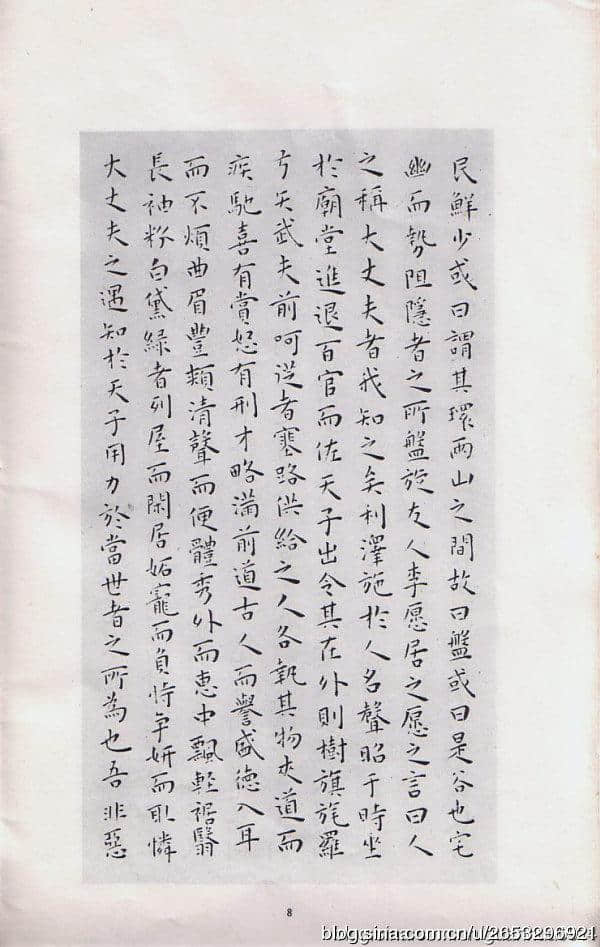 民鮮少或曰謂其環兩山之間故曰盤或曰是谷也宅
幽而勢阻隱者之所盤旋友人李愿居之愿之言曰人
之稱大丈夫者我知之矣利澤施於人名聲昭于時坐
於廟堂進退百官而佐天子出令其在外則樹旗旄羅
弓矢武夫前呵從者塞路供給之人各執其物夾道而
疾馳喜有賞怒有刑才略滿前道古人而譽盛德入耳
而不煩曲眉豐頰清聲而便體秀外而惠中飄輕裾翳
長袖粉白黛綠者列屋而閑居妬寵而負恃争妍而取憐
大丈夫之遇知於天子用力於當世者之所為也吾非惡
8
blog.sina.com.cn/u/2653296921